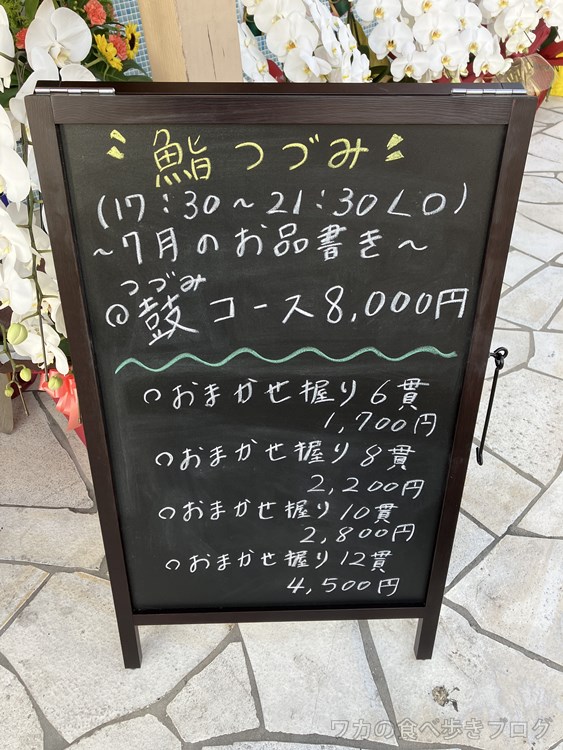 鮨つづみ
(17:30～21:30LO)
～7月のお品書き～
つづみ
◎鼓コース8,000円
○おまかせ握り6貫
1,700円
○おまかせ握り8貫
2,200円
○おまかせ握り10貫
2,800円
○おまかせ握り12貫
4,500円
ワカの食べ歩きブログ